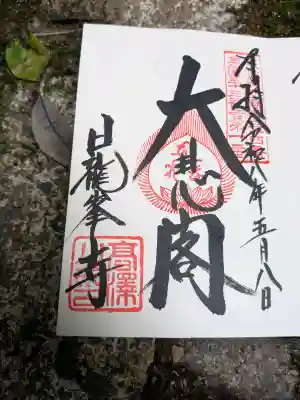 奉拝 令和八年五月八日
大悲閣
日龍峯寺
髙澤